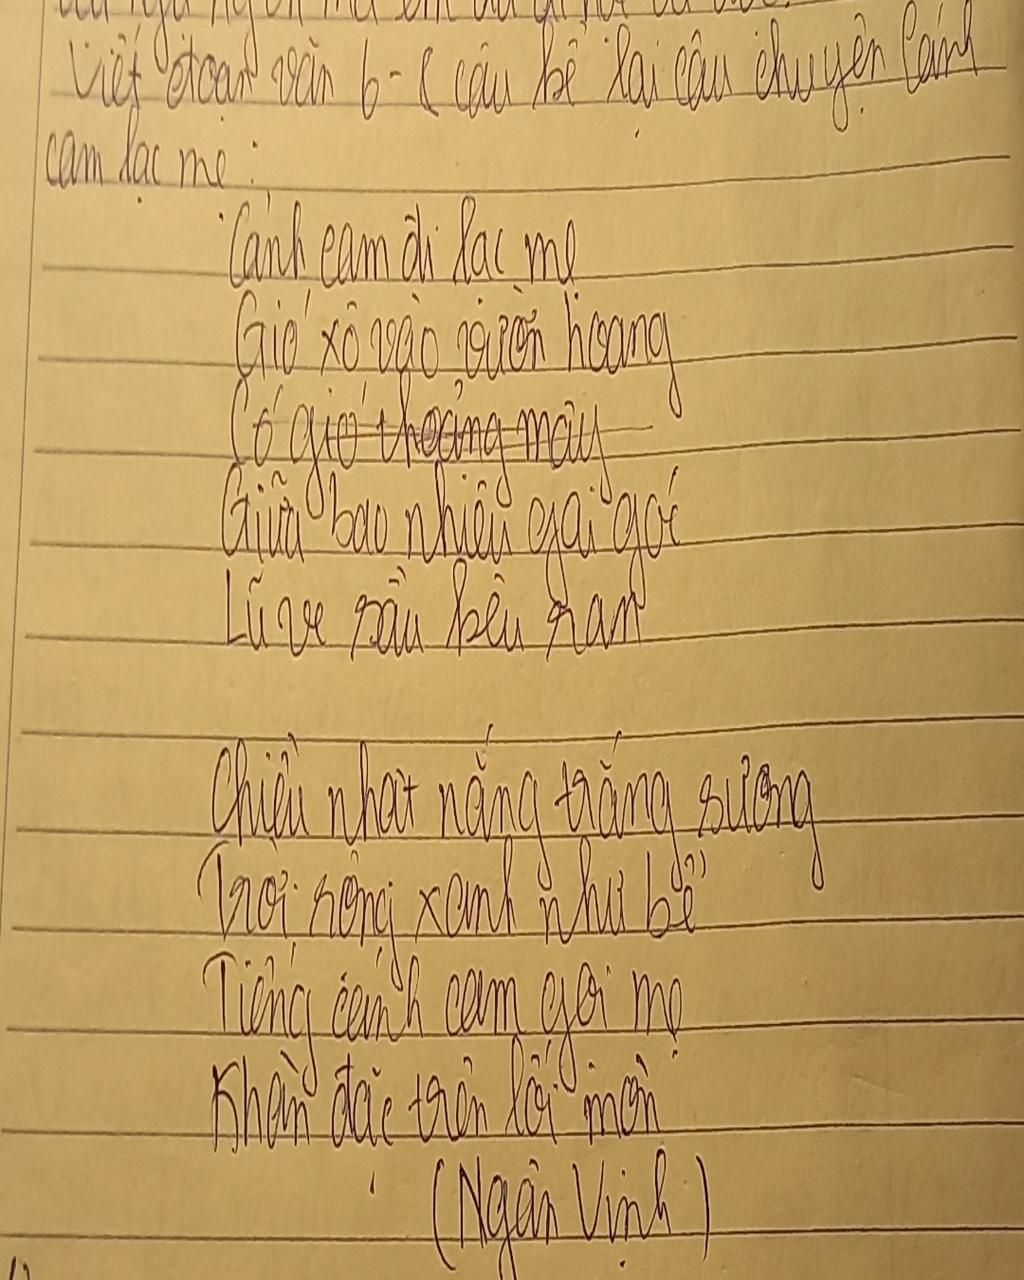 Viết đoạn văn 6-8 câu kể lại câu chuyện Cánh
cam lạc mẹ:
Cánh cam đi lạc mẹ
Gió xô vào vườn hoang
Có gió thoảng mây
Giữa bao nhiêu gai góc
Lũ ve sầu kêu ran
Chiều nhạt nắng trắng sương
Trời rộng xanh như bể
Tiếng cánh cam gọi mẹ
Khản đặc trên lối mòn
(Ngân Vịnh)